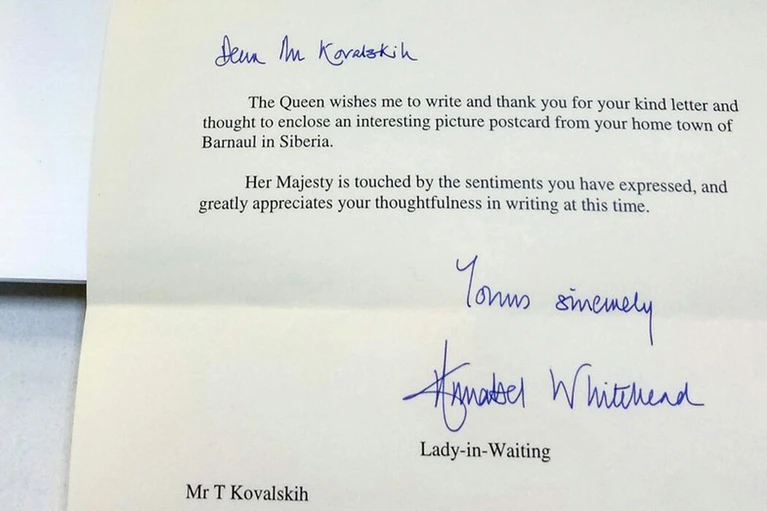 Dear Mr Kovalskih
The Queen wishes me to write and thank you for your kind letter and
thought to enclose an interesting picture postcard from your home town of
Barnaul in Siberia.
Her Majesty is touched by the sentiments you have expressed, and
greatly appreciates your thoughtfulness in writing at this time.
Yours sincerely
Annabel Whitehead
Lady-in-Waiting
Mr T Kovalskih